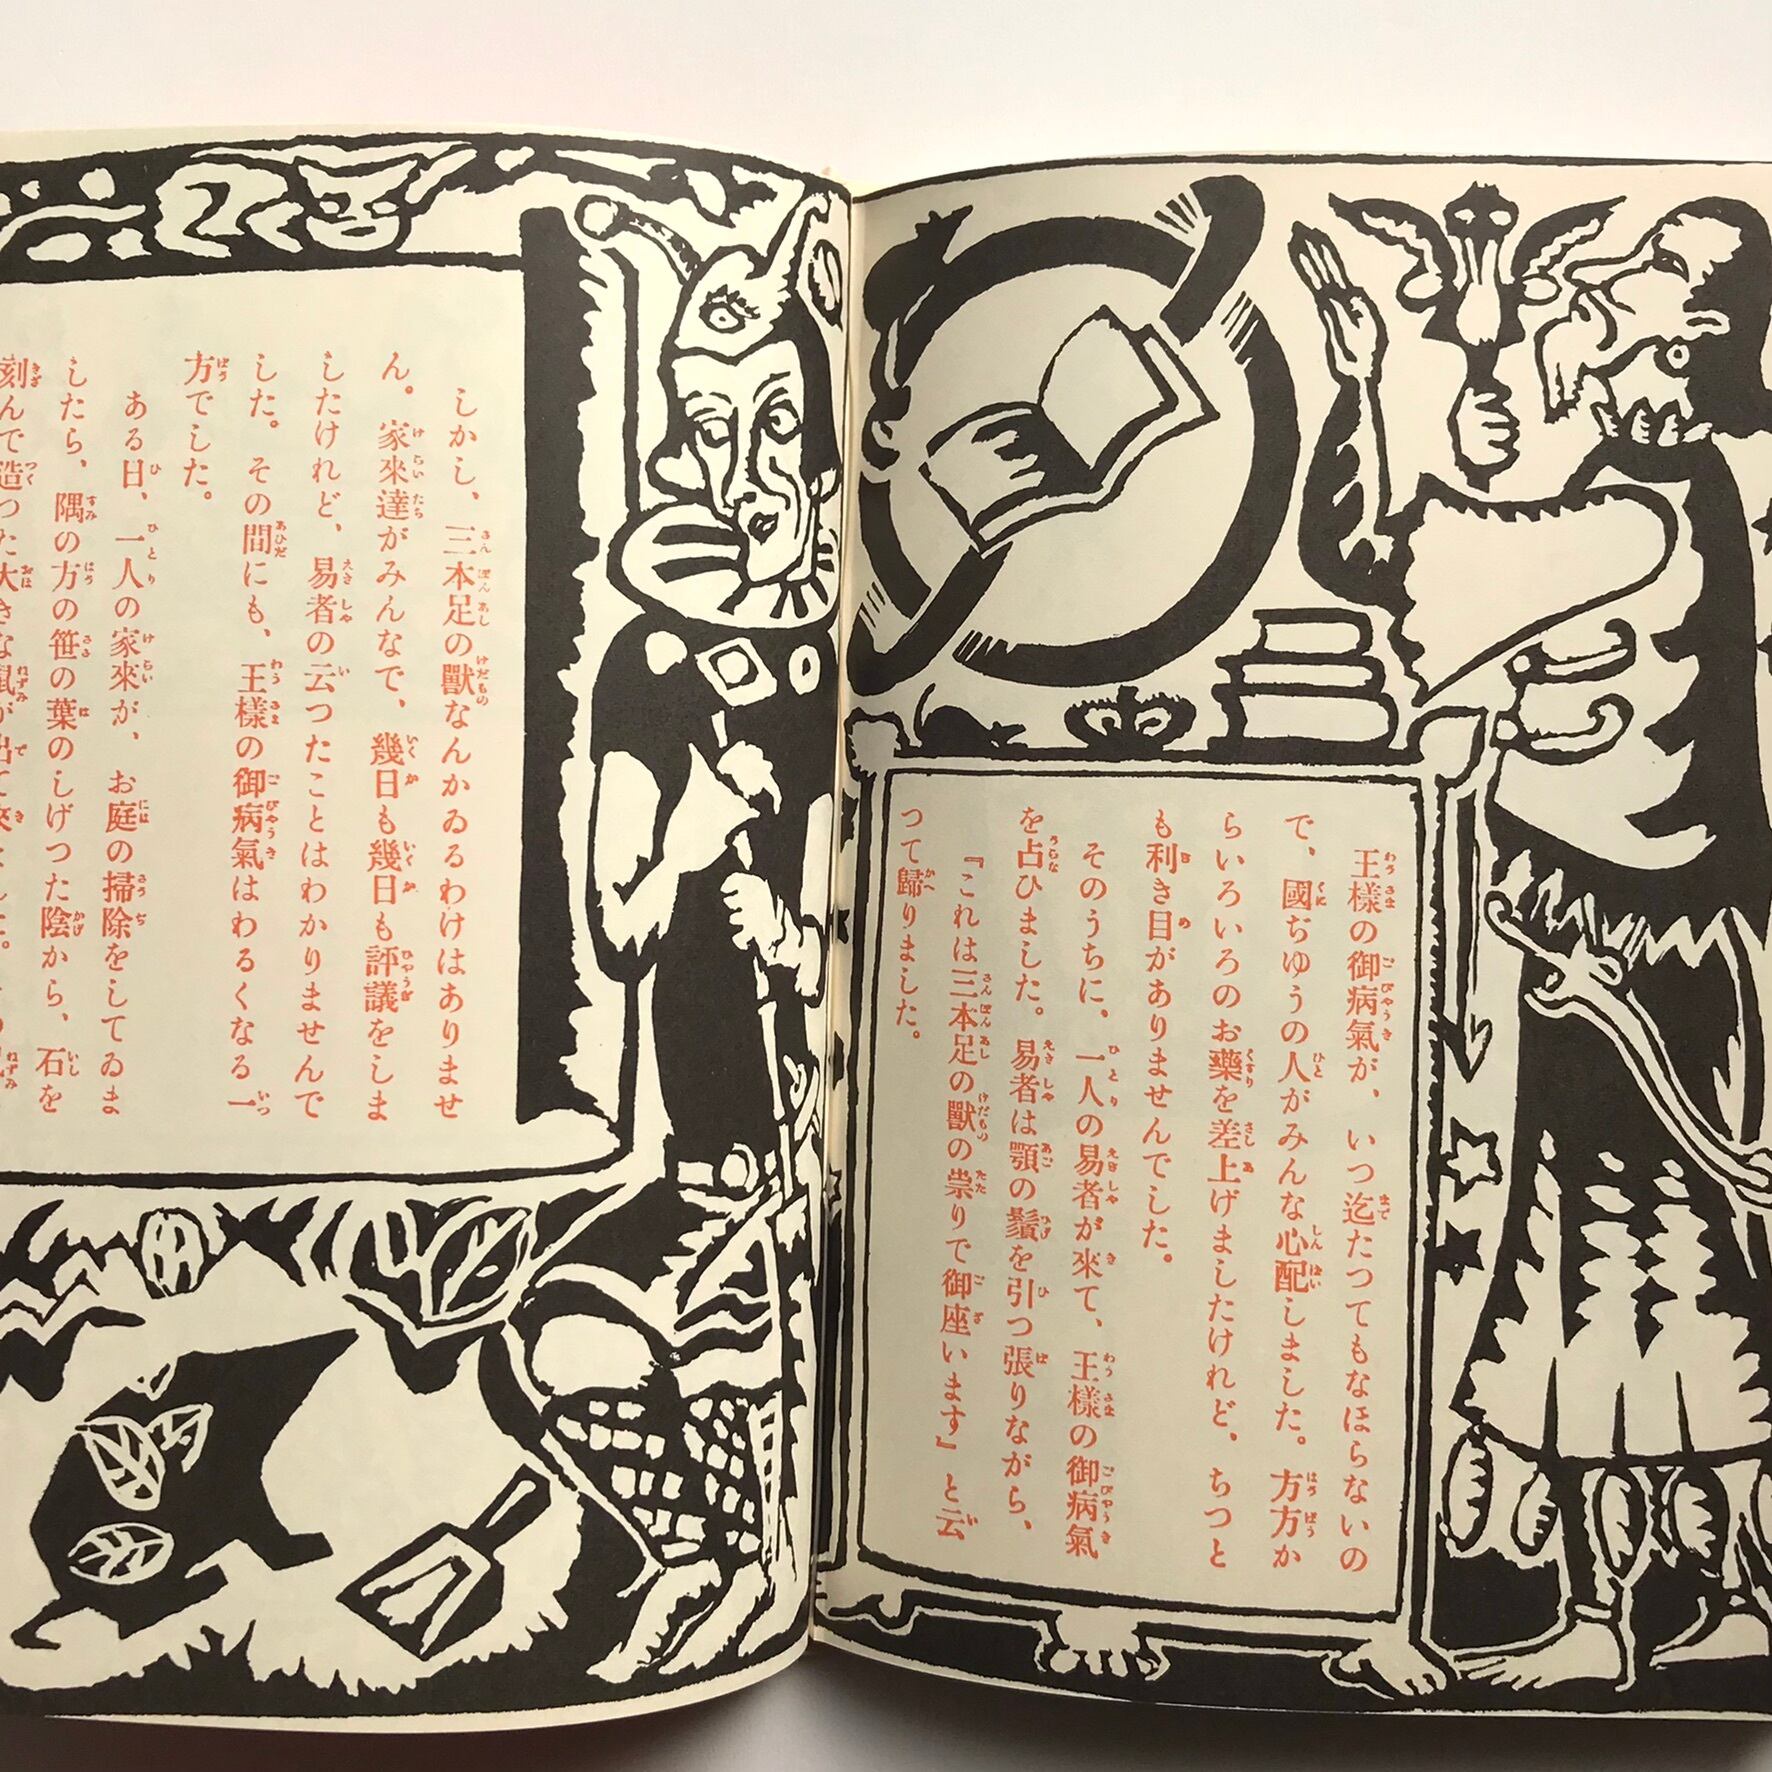 王樣の御病氣が、いつ迄たつてもなほらないの
で、國ぢゆうの人がみんな心配しました。方方か
らいろいろのお藥を差上げましたけれど、ちつと
も利き目がありませんでした。
そのうちに、一人の易者が來て、王樣の御病氣
を占ひました。易者は顎の鬚を引つ張りながら、
『これは三本足の獸の祟りで御座います』と云
つて歸りました。
しかし、三本足の獸なんかゐるわけはありませ
ん。家來達がみんなで、幾日も幾日も評議をしま
したけれど、易者の云つたことはわかりませんで
した。その間にも、王樣の御病氣はわるくなる一
方でした。
ある日、一人の家來が、お庭の掃除をしてゐま
したら、隅の方の笹の葉のしげつた陰から、石を
刻んで造つた大きな鼠が出て來ました。